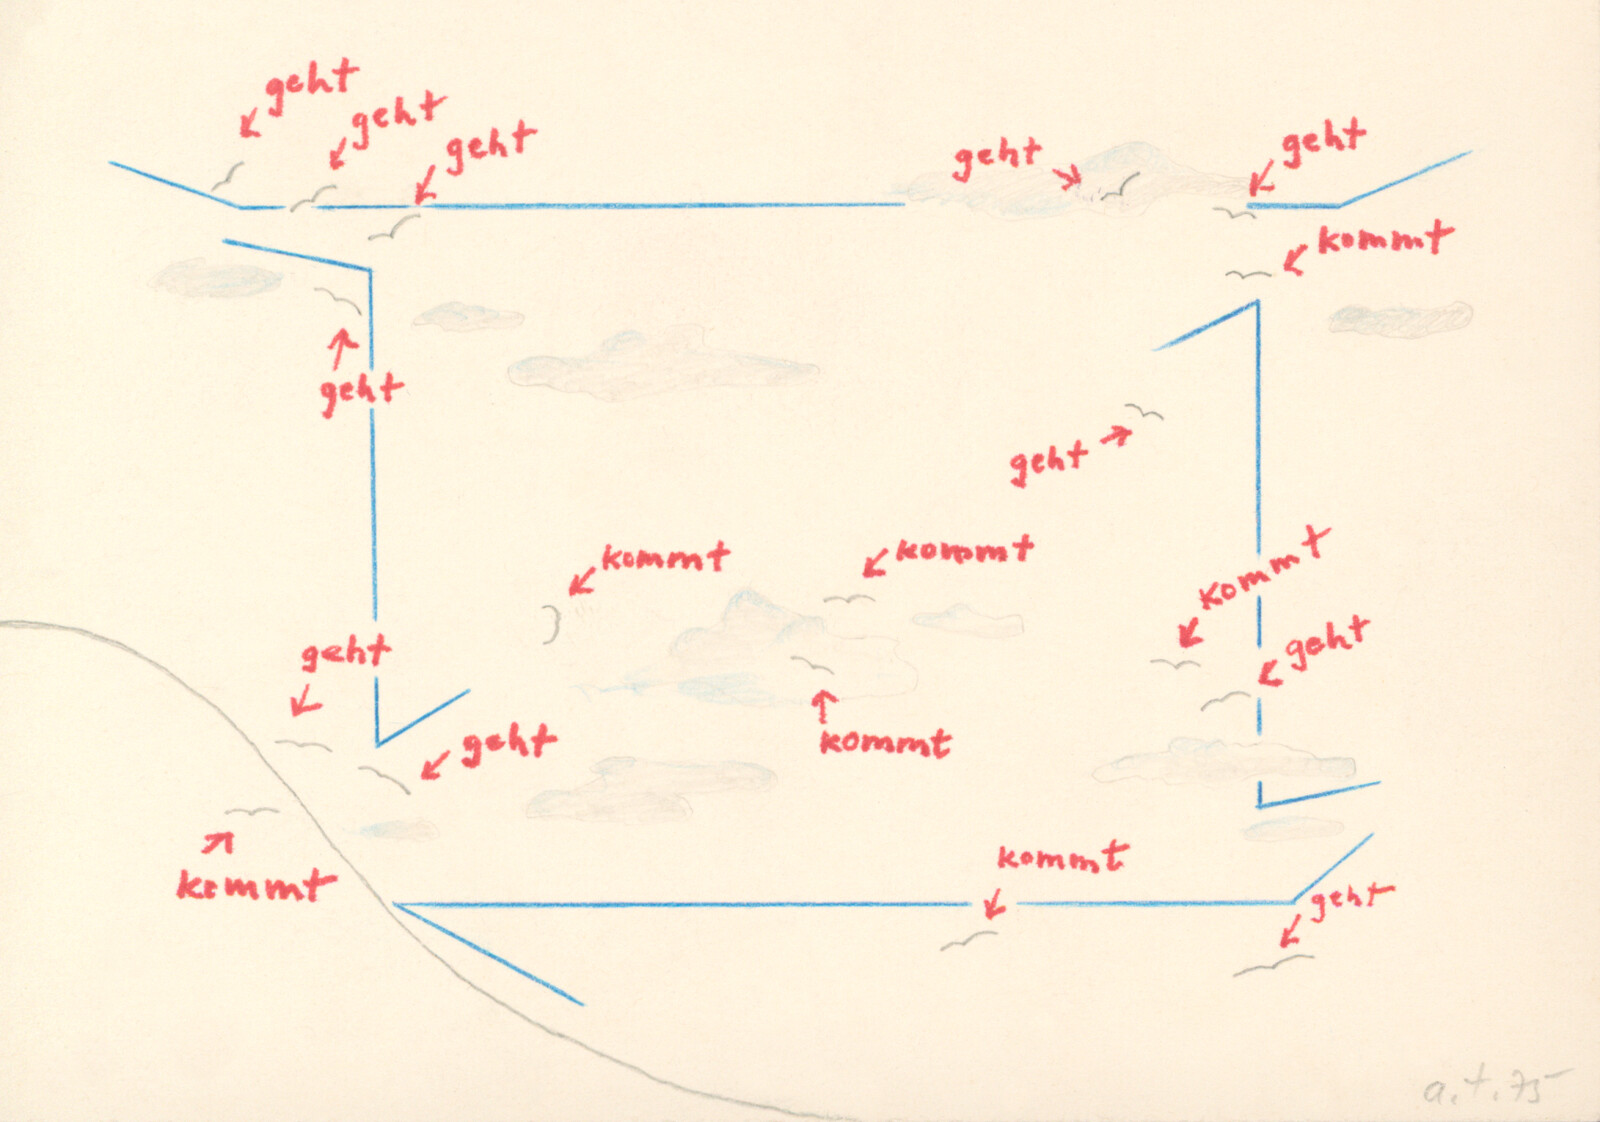 geht
geht
geht
geht
geht
kommt
geht
geht
kommt
kommt
kommt
geht
geht
geht
kommt
kommt
kommt
geht
a.t.75